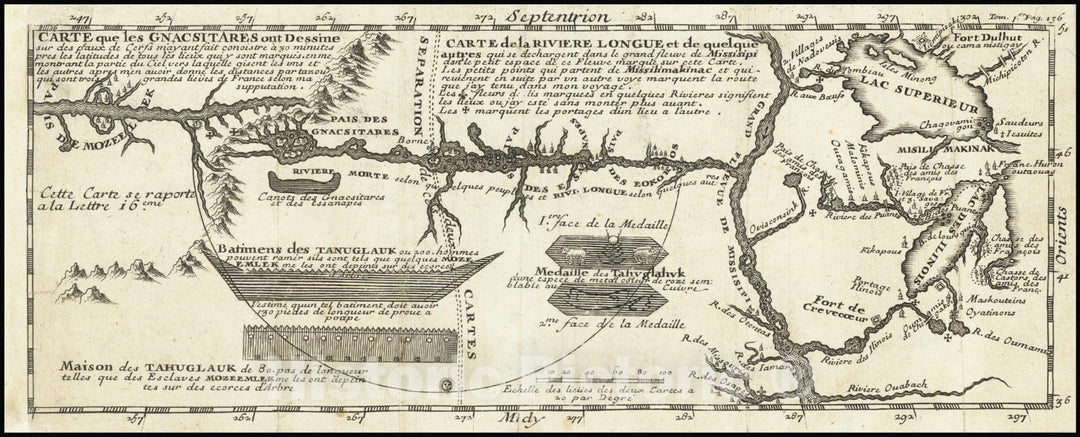 Septentrion
Tom. 1. Pag. 136
247
262
267
272
277
282
287
CARTE que les GNACSITARES ont Dessiné
sur des peaux de Cerfs m'ayant fait conoistre à 30 minutes
pres les latitudes de tous les lieux qui y sont marques, me
montrant la partie du Ciel vers laquelle gisent les uns et
les autres apres m'en auoir donné les distances par tazou
qui sont trois grandes lieues de France selon ma
supputation.
PAIS DES MOZEEMLEK
PAIS DES
GNACSITARES
RIVIERE MORTE
Canots des Gnacsitares
et des Essanapes
Cette Carte se raporte
a la Lettre 16.eme
SEPARATION
des deux
CARTES
Borne
CARTE de la RIVIERE LONGUE et de quelques
autres qui se dechargent dans le grand fleuve de Missisipi
dont le petit espace de ce Fleuve marqué sur cette Carte.
Les petits points qui partent de Missilimakinac et qui
reviennent en suite par un autre voye marquent la route
que j'ay tenu dans mon voyage.
Les fleurs de lis marquées en quelques Rivieres signifient
les lieux ou j'ay esté sans monter plus auant.
Les ✠ marquent les portages d'un lieu a l'autre.
selon quelques peuples et RIVI. LONGUE selon quelques autres
PAIS DES ESSANAPES
PAIS DES EOKOROS
GRAND FLEUVE DE MISSISIPI
Villages de Nadouessis
R. du Tombeau
R. aux Bœufs
Fort Dulhut
ou camanistigay
Michipicoton
Isles Minong
LAC SUPERIEUR
Chagouamigon
Saudeurs
Iesuites
MISILIMAKINAK
Franc. Huron
outaouas
Pais de Chasse
des amis des
François
Kikapous
Malominis
Outagamis
Ouisconsink
Riviere des Puans
Puans
LAC DES ILINOIS
Chasse des
amis des
François
Chasse de
Castors des
amis des
Franç.
Kikapous
Portage
Ilinois
Fort de
Crevecœur
Riviere des Ilinois
Maskouteins
Oyatinons
R. des Oumamis
R. des Otentas
R. des Missouris
R. des Osages
Tamaroa
Riviere Ouabach
Batimens des TAHUGLAUK ou 200. hommes
peuvent ramer s'ils sont tels que quelques MOZE
EMLEK me les ont depeints sur des ecorces
J'estime qu'un tel batiment doit auoir
130 pieds de longueur de proue a
poupe
Maison des TAHUGLAUK de 80. pas de longueur
telles que des Esclaves MOZEEMLEK me les ont depein
tes sur des ecorces d'Arbre
1.ere face de la Medaille
Medaille des Tahuglahuk
d'une espece de metal coleur de roze sem
blable au Cuivre.
2.me face de la Medaille
10 20 40 60 80 100
Echelle des lieues des deux Cartes a
20 par Degré
51
46
41
36
Orients
257
262
267
272
277
282
287
292
297
Midy